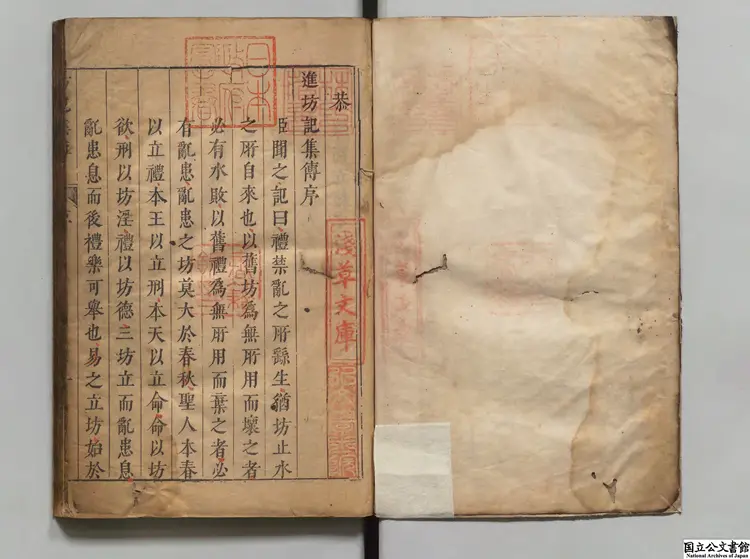 恭
進坊記集傳序
臣聞之記曰禮禁亂之所繇生猶坊止水
之所自來也以舊坊爲無所用而壞之者
必有水敗以舊禮爲無所用而棄之者必
有亂患亂患之坊莫大於春秋聖人本春
以立禮本王以立刑本天以立命命以坊
欲刑以坊淫禮以坊德三坊立而亂患息
亂患息而後禮樂可舉也易之立坊始於
淺草文庫
国立公文書館
National Archives of Japan